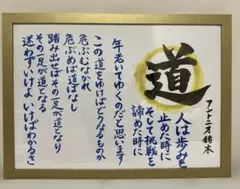 道
アントニオ猪木
人は歩みを
止めた時に
そして挑戦を
諦めた時に
年老いてゆくのだと思います
この道をゆけばどうなるものか
危ぶむなかれ
危ぶめば道はなし
踏み出せばその一足が道となり
その一足が道となる
迷わずいけよ、いけばわかるさ